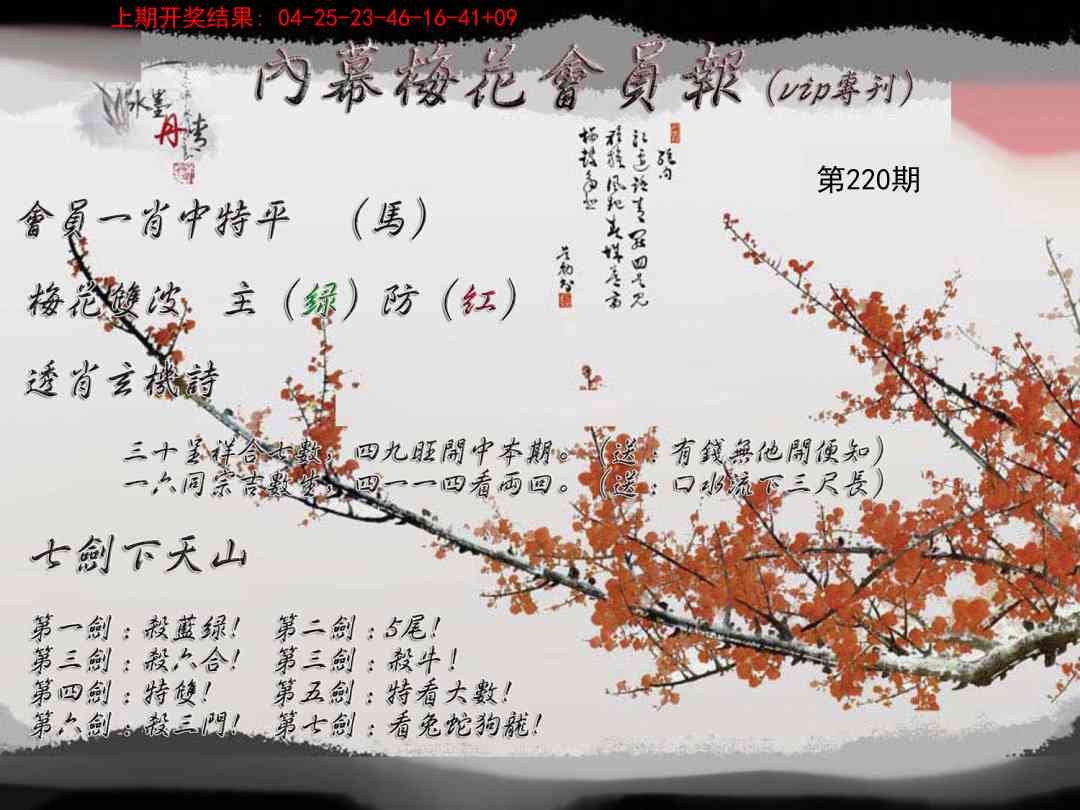 上期开奖结果: 04-25-23-46-16-41+09
內幕梅花會員報(vip專刊)
水墨
丹青
第220期
會員一肖中特平 (馬)
梅花雙波 主(绿)防(红)
透肖玄機詩
三十呈祥合七數,四九旺開中本期。(送:有錢無他開便知)
一六同宗吉數生,四一一四看両回。(送:口水流下三尺長)
七劍下天山
第一劍:殺藍绿! 第二劍:5尾!
第三劍:殺六合! 第三劍:殺牛!
第四劍:特雙! 第五劍:特看大數!
第六劍:殺三門! 第七劍:看兔蛇狗龍!